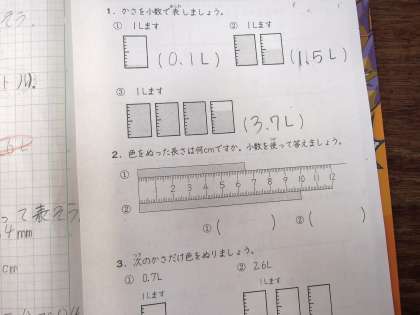 1. かさを小数で表しましょう。
① 1Lます
② 1Lます
(0.1L)
(1.5L)
③ 1Lます
(3.7L)
2. 色をぬった長さは何cmですか。小数を使って答えましょう。
①
1 2 3 4 5 6 7 8 9 10 11 12
②
①( ) ②( )
3. 次のかさだけ色をぬりましょう。
① 0.7L
② 2.6L
1Lます
1Lます
って表そう
4mm
cm